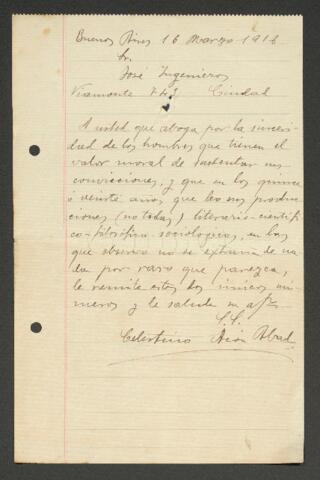 Buenos Aires 16 Marzo 1916
Sr.
José Ingenieros
Viamonte 743 Ciudad
A usted que aboga por la sinceri-
dad de los hombres que tienen el
valor moral de sustentar sus
convicciones, y que en los quince
ó veinte años que leo sus produc-
ciones (no todas) literario-científi-
co-filosófico-sociológicas, en las
que observo no se extraña de na-
da por raro que parezca,
le remite estos dos únicos nú-
meros y le saluda su
S.S.
Celestino Abad